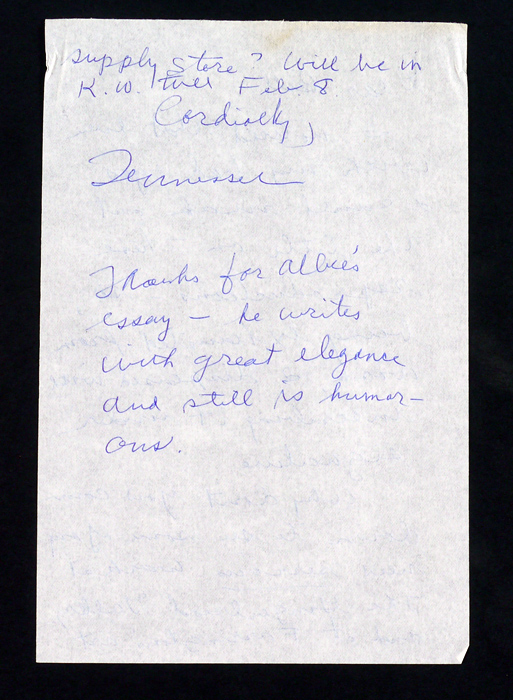 supply store? Will be in
K.W. till Feb 8
Cordially,
Tennessee
Thanks for Albee's
essay — he writes
with great elegance
and still is humor-
ous.